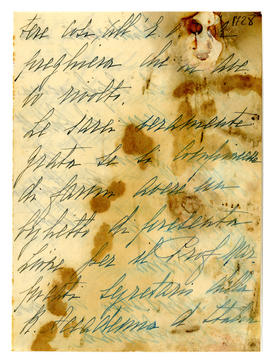 tere così all'E.
preghiera che in ave
vo rivolto.
Le sarei veramente
grata se si compiacesse
di farmi avere un
biglietto di presenta
zione per il Prof.
segretario della
R. Accademia di
1728